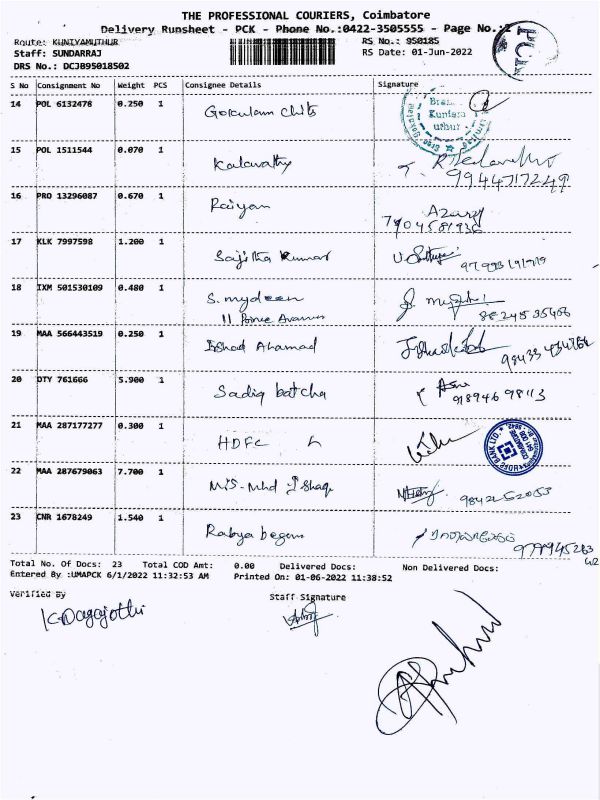 THE PROFESSIONAL COURIERS, Coimbatore
Delivery Runsheet - PCK - Phone No.:0422-3505555 - Page No.:2
Route: KUNIYAMUTHUR RS No.: 950185
Staff: SUNDARRAJ RS Date: 01-Jun-2022
DRS No.: DCJ095018502
PCK
S No Consignment No Weight PCS Consignee Details Signature
14 POL 6132478 0.250 1 Gokulam Chits
15 POL 1511544 0.070 1 Kalavathy
9944717249
16 PRO 13296087 0.670 1 Raiyan
7904581936
17 KLK 7997598 1.200 1 Sajitha Kumar
18 IXM 501530109 0.480 1 S. mydeen
11 Avenue
19 MAA 566443519 0.250 1 Irshad Ahamad
20 DTY 761666 5.900 1 Sadiq batcha
91894698113
21 MAA 287177277 0.300 1 HDFC L
HDFC BANK LTD.
22 MAA 287679063 7.700 1 M/S- Mhd
23 CNR 1678249 1.540 1 Rabya begum
Total No. Of Docs: 23 Total COD Amt: 0.00 Delivered Docs: Non Delivered Docs:
Entered By :UMAPCK 6/1/2022 11:32:53 AM Printed On: 01-06-2022 11:38:52
Verified By Staff Signature